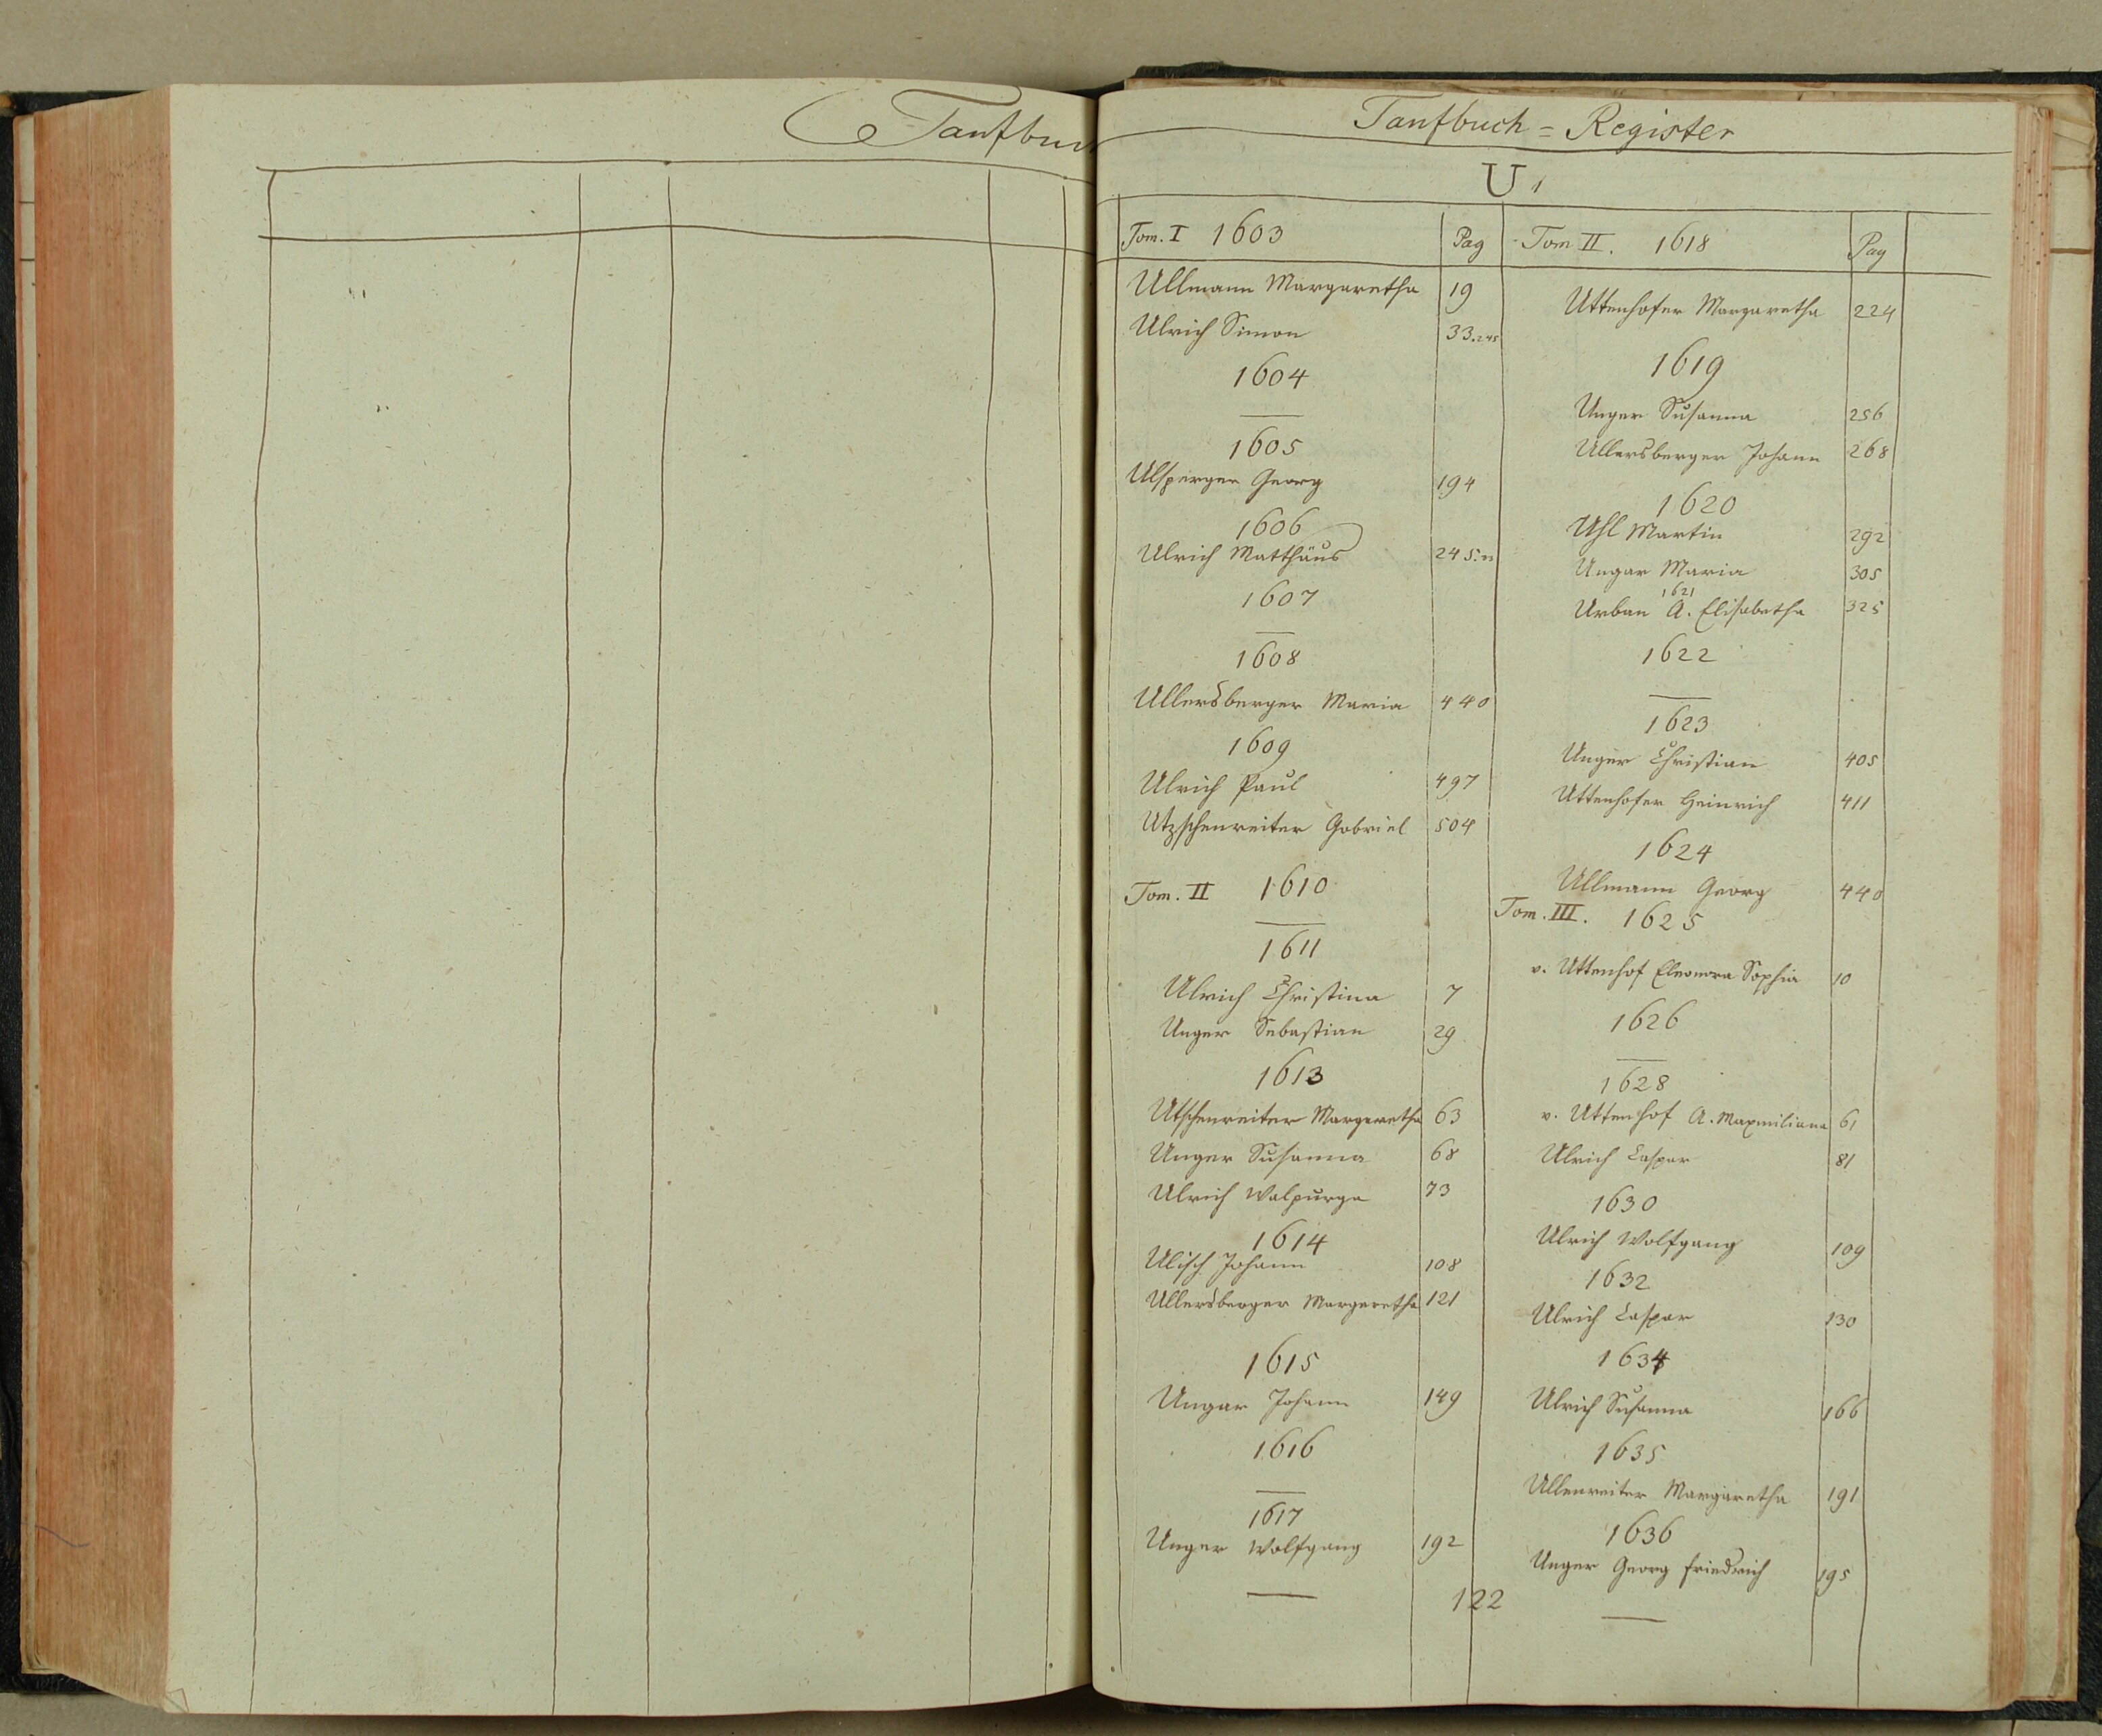 Taufbuc
Taufbuch = Register
U.
Tom. I 1603 Pag
Ullmann Margaretha 19
Ulrich Simon 33.245
1604
—
1605
Ulsperger Georg 194
1606
Ulrich Matthäus 245.
1607
—
1608
Ullersberger Maria 440
1609
Ulrich Paul 497
Utzschenreiter Gabriel 504
Tom. II 1610
—
1611
Ulrich Christina 7
Unger Sebastian 29
1613
Utschenreiter Margaretha 63
Unger Susanna 68
Ulrich Walpurga 73
1614
Ulisch Johann 108
Ullersberger Margaretha 121
1615
Ungar Johann 149
1616
—
1617
Unger Wolfgang 192
—
Tom II. 1618 Pag
Uttenhofer Margaretha 224
1619
Unger Susanna 256
Ullersberger Johann 268
1620
Uhl Martin 292
Ungar Maria 305
1621
Urban A. Elisabetha 325
1622
—
1623
Unger Christian 405
Uttenhofer Heinrich 411
1624
Ullmann Georg 440
Tom. III. 1625
v. Uttenhof Eleonora Sophia 10
1626
—
1628
v. Uttenhof A. Maxmiliana 61
Ulrich Caspar 81
1630
Ulrich Wolfgang 109
1632
Ulrich Caspar 130
1634
Ulrich Susanna 166
1635
Ullenreiter Margaretha 191
1636
Unger Georg Friedrich 195
—
122